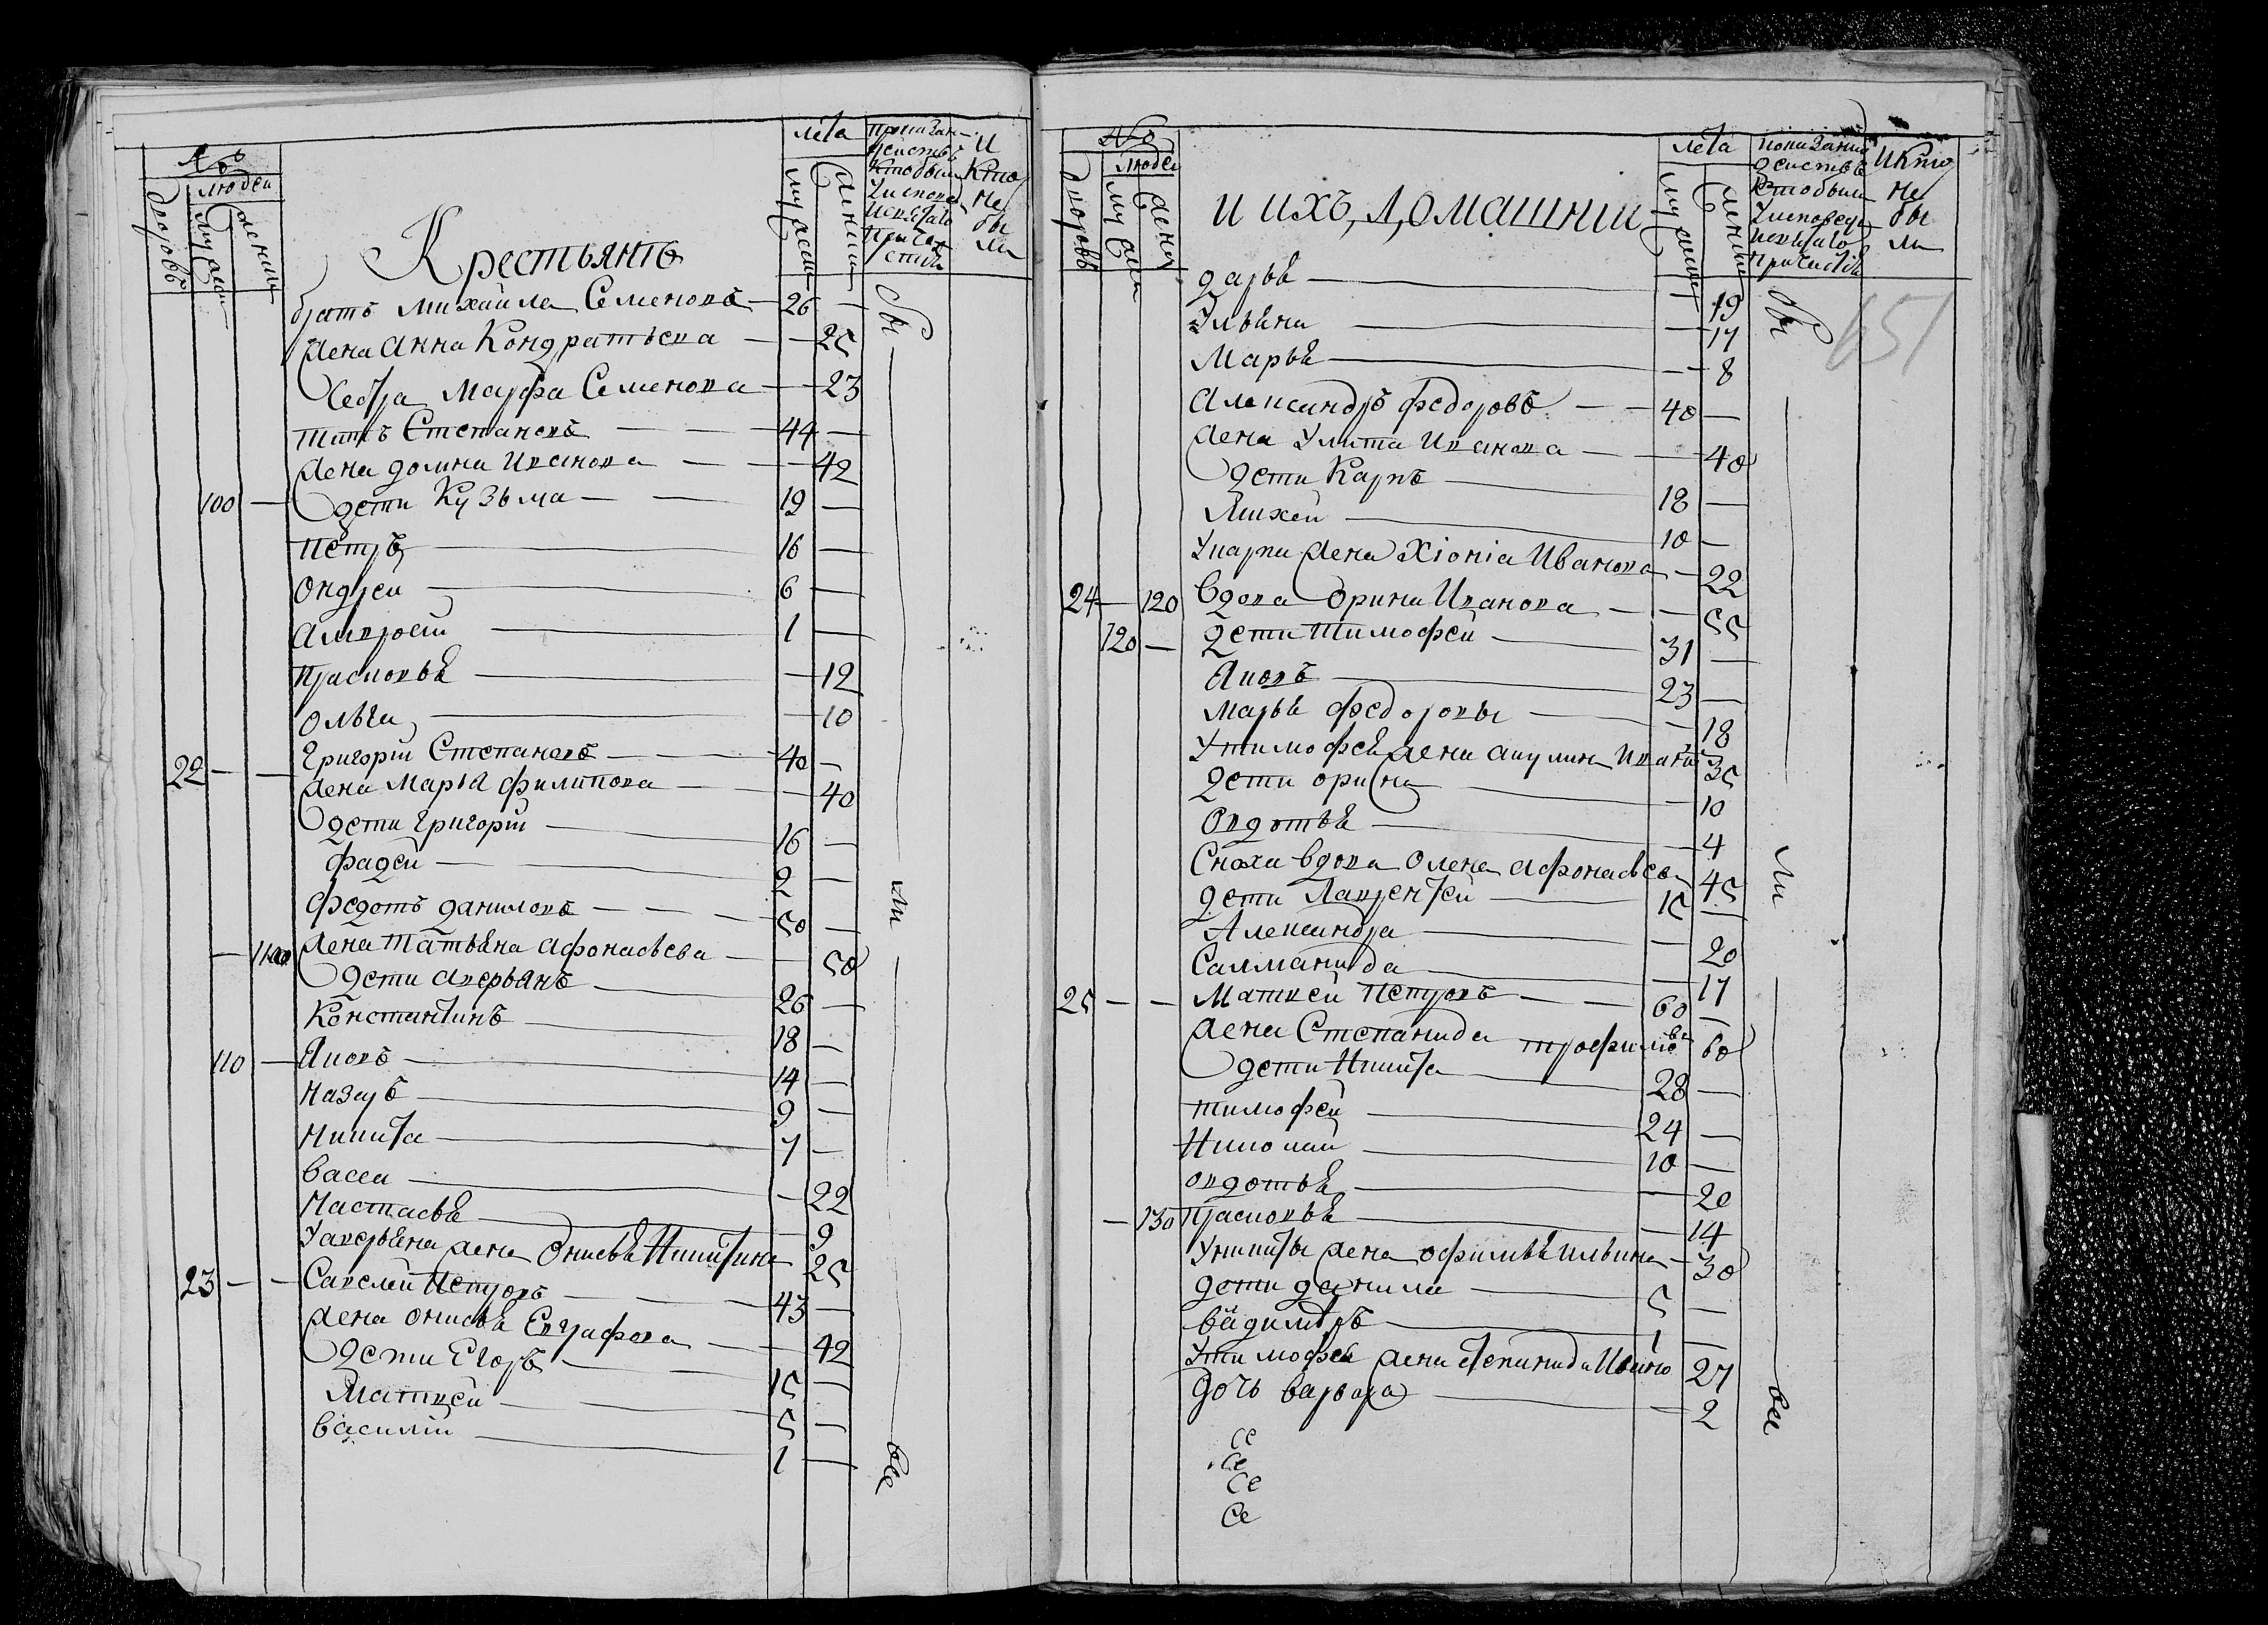 №
людей
дворовъ
мужеск
женски
Крестьянъ
лета
мужеск
женски
показан
действъ
кто былъ
у исповед
и святаго
причас
тия
и
кто
не
бы
ли
братъ михайла Семеновъ — 26 —
жена Анна Кондратьева — — 25
Сестра Марфа Семенова — — 23
титъ Степановъ — 44 —
жена домна Иванова — — 42
100 — дети Кузьма — 19 —
петръ — 16 —
ондреи — 6 —
амвросiй — 1 —
прасковья — — 12
ольга — — 10
22 — — григорiй Степановъ — 40 —
жена Марья филипова — — 40
дети григорiй — 16 —
фадей — 2 —
федотъ даниловъ — 50 —
— 110 жена татьяна афонасьева — — 50
дети аверьянъ — 26 —
Константинъ — 18 —
110 — Яковъ — 14 —
назаръ — 9 —
никита — 7 —
васса — — 22
настасья — — 9
У аверьяна жена Онисья Никитина — 25
23 — — Савелей петровъ — 43 —
жена онисья Евграфова — — 42
дети Егоръ — 15 —
Матвей — 5 —
василiй — 1 —
бы
ли
все
№
людей
дворовъ
мужеск
женск
и ихъ домашнии
лета
мужеск
женски
показания
действъ
кто былъ
у исповеди
и святаго
причастия
и кто
не
бы
ли
651
дарья — — 19
Ульяна — — 17
Марья — — 8
Александръ федоровъ — 40 —
жена Улита Иванова — — 40
дети Карпъ — 18 —
Михей — 10 —
У карпа жена Хiонiа Иванова — 22
24 — 120 вдова Орина Иванова — — 55
120 — дети тимофей — 31 —
Яковъ — 23 —
марья федоровы — — 18
У тимофея жена акулина Иван 35
дети орина — — 10
овдотья — — 4
Сноха вдова Олена афонасьева 45
дети Лаврентей — 15 —
Александра — — 20
Салманида — — 17
25 — — Матвей петровъ — 60 —
жена Степанида трофимова 60
дети Никита — 28 —
тимофей — 24 —
Николай — 10 —
овдотья — — 20
— 130 прасковья — — 14
У никиты жена офимья ильина — 30
дети данила — 5 —
владимиръ — 1 —
У тимофея жена степанида Ивано 27
дочь варвара — — 2
Се
Се
Се
Се
бы
ли
все